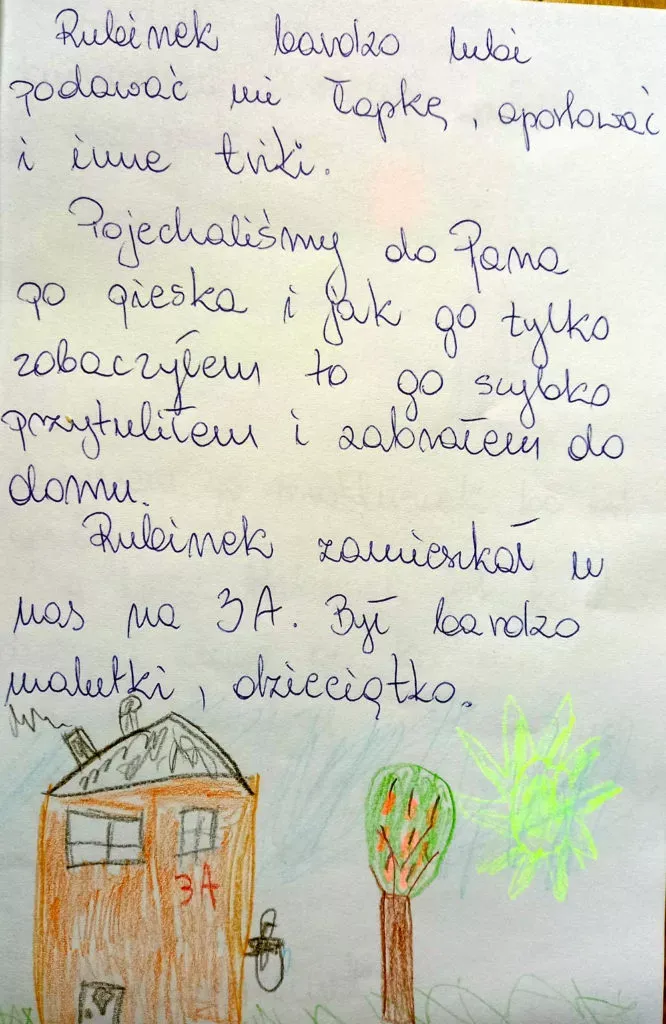 Rubinek bardzo lubi
podawać mi łapkę, aportować
i inne triki.
Pojechaliśmy do Pana
po pieska i jak go tylko
zobaczyłem to go szybko
przytuliłem i zabrałem do
domu.
Rubinek zamieszkał u
nas na 3A. Był bardzo
malutki, dzieciątko.
3A